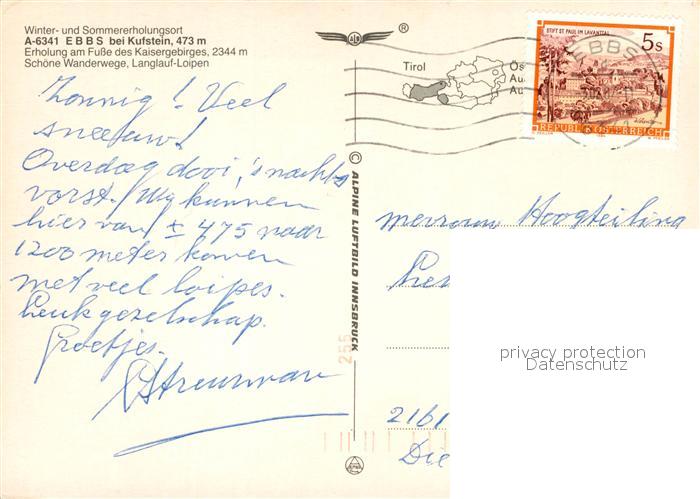 Winter- und Sommererholungsort
A-6341 E B B S bei Kufstein, 473 m
Erholung am Fuße des Kaisergebirges, 2344 m
Schöne Wanderwege, Langlauf-Loipen
Zonnig! Veel
sneeuw!
Overdag dooi, 's nachts
vorst. Wij kunnen
hier van ± 475 naar
1200 meter komen
met veel loipes.
Leuk gezelschap.
Groetjes.
© ALPINE LUFTBILD INNSBRUCK
255
®
Tirol
Ös
Au
Au
STIFT ST. PAUL IM LAVANTTAL
5 S
REPUBLIK ÖSTERREICH
EBBS
mevrouw Hoogteiling
privacy protection
Datenschutz
2161
Die